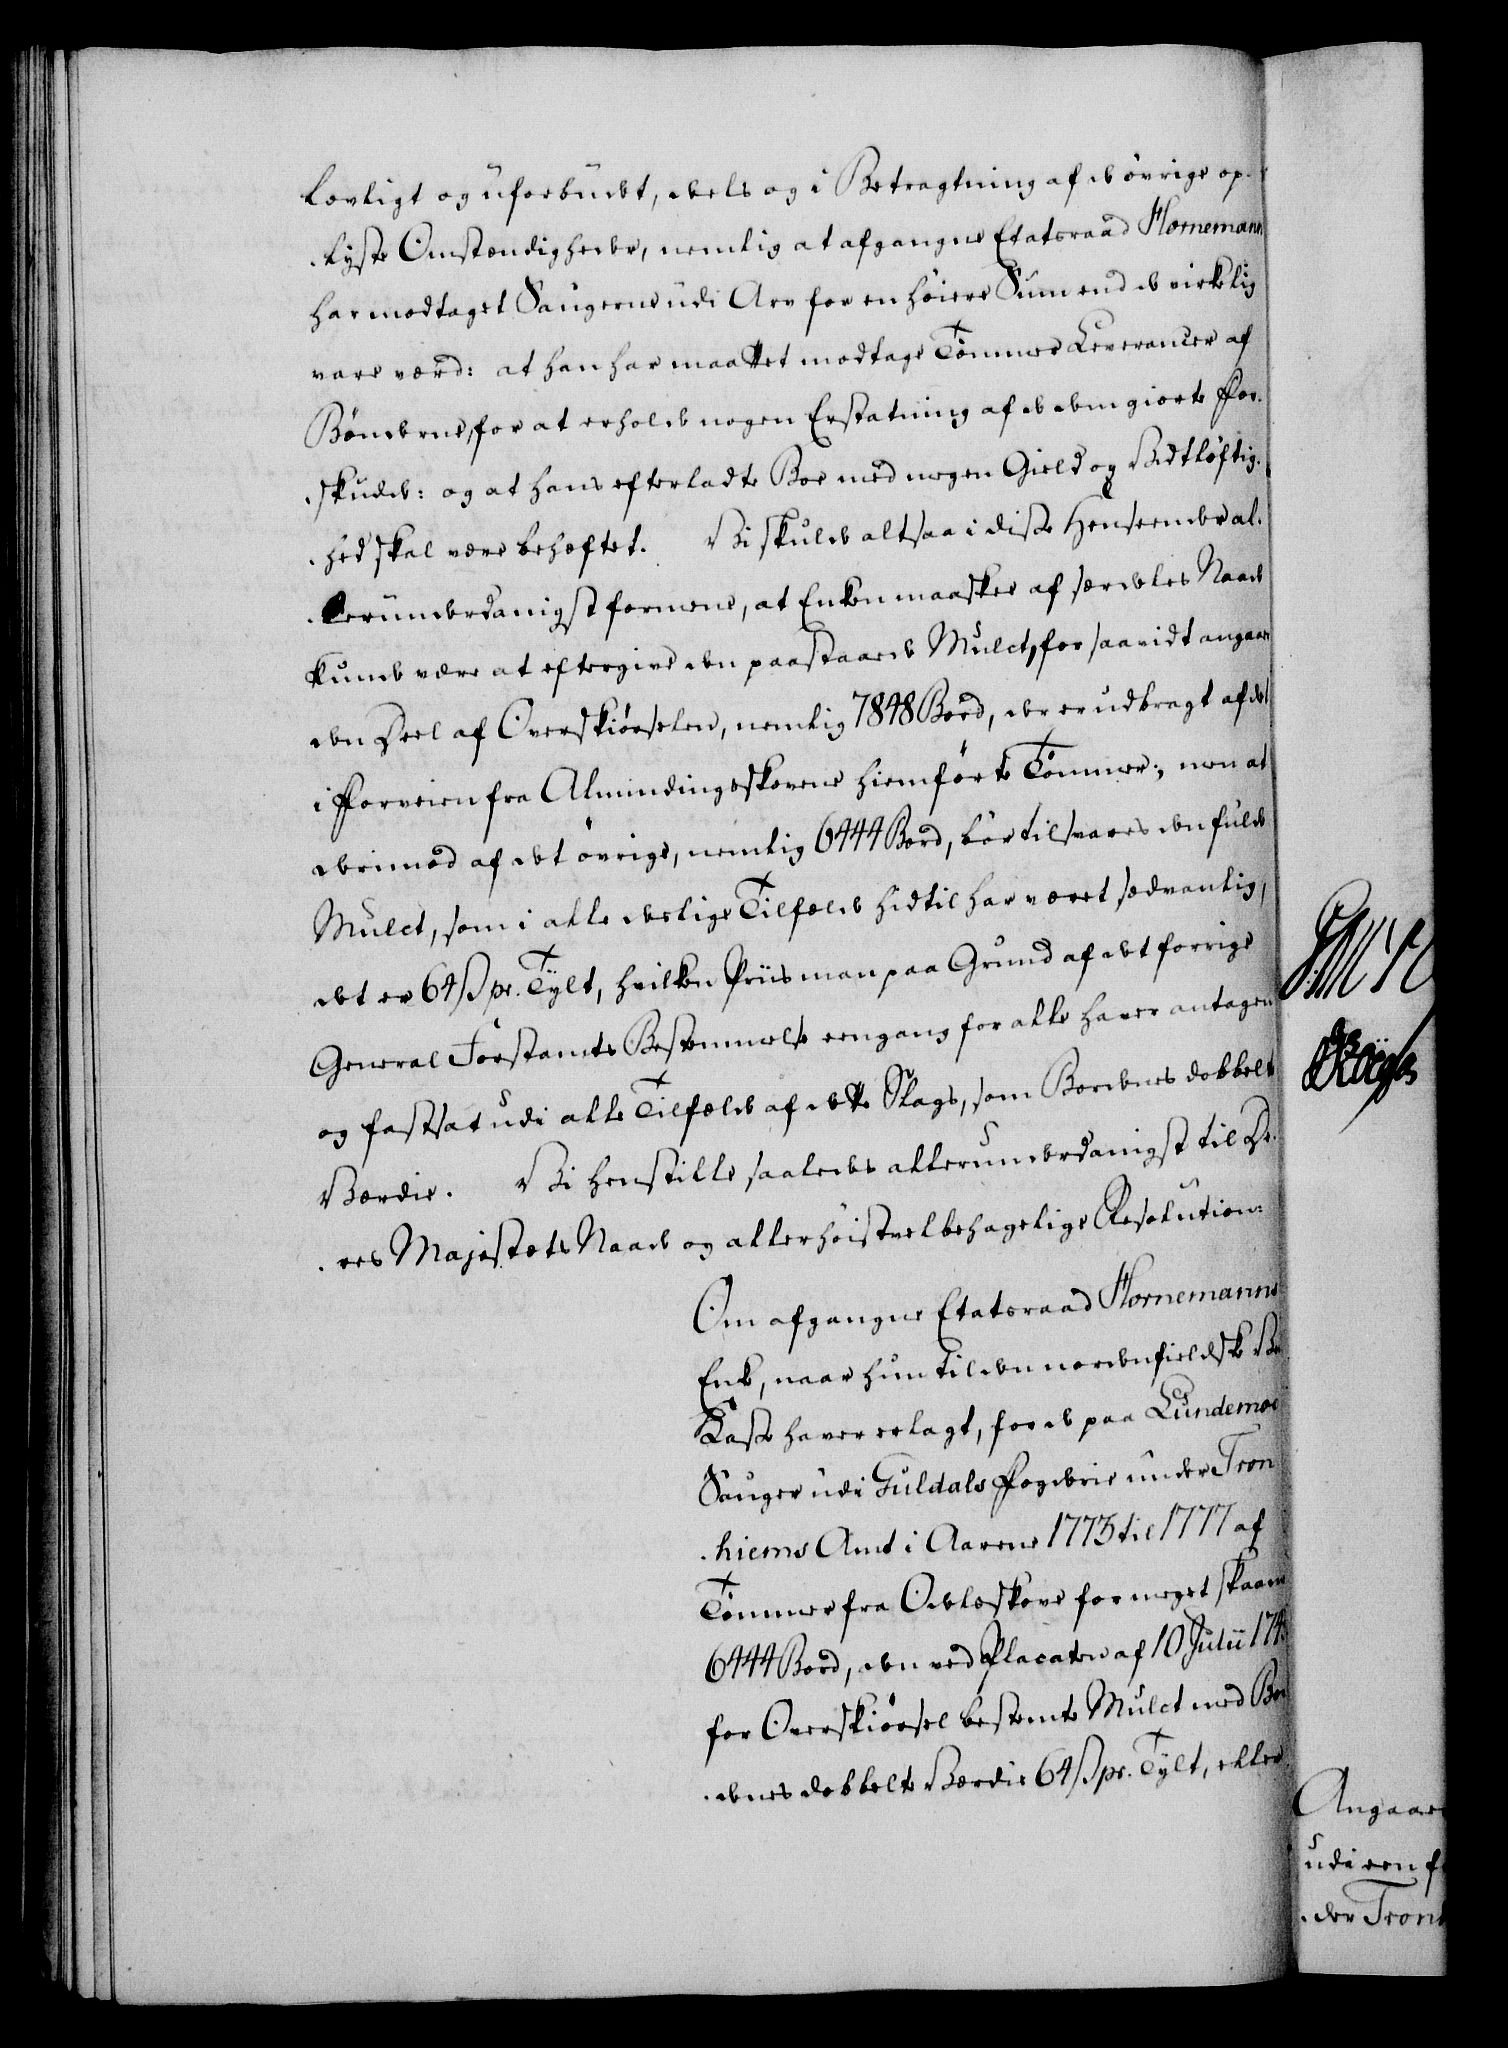 lovligt og uforbudt, deels og i Betragtning af de övrige op-
lyste Omstændigheder, nemlig at afgangne Etatsraad Hornemann
har modtaget Saugerne udi Arv for en höiere Sum end de virkelig
vare værd: at han har maattet modtage Tömmer Leverancer af
Bönderne, for at erholde nogen Erstatning af de dem giorte For-
skudde: og at hans efterladte Boe med megen Gield og Vidtlöftig-
hed skal være behæftet. Vi skulde altsaa i disse Henseender al-
lerunderdanigst formene, at Enken maaskee af særdeles Naade
kunde være at eftergive den paastaaede Mulct, for saavidt angaaer
den Deel af Overskiörselen, nemlig 7848 Bord, der er udbragt af det
i Forveien fra Almindingsskovene hiemförte Tömmer; men at
derimod af det övrige, nemlig 6444 Bord, bör tilsvares den fulde
Mulct, som i alle deslige Tilfælde hidtil har været sædvanlig,
det er 64 ß pr. Tylt, hvilken Priis man paa Grund af det forrige
General Forstamts Bestemmelse eengang for alle haver antagen
og fastsat udi alle Tilfælde af dette Slags, som Bordenes dobbelte
Værdie. Vi henstille saaledes allerunderdanigst til De-
res Majestæts Naade og allerhöistvelbehagelige Resolution:
Om afgangne Etatsraad Hornemanns
Enke, naar hun til den nordenfieldske
Kasse haver erlagt, for de paa Lundemoe
Sauger udi Guldals Fogderie under Tron-
hiems Amt i Aarene 1773 til 1777 af
Tömmer fra Odelsskove for meget skaarne
6444 Bord, den ved Placaten af 10 Julii
for Overskiörsel bestemte Mulct med Bor-
denes dobbelte Værdie 64 ß pr. Tylt, eller
Angaae
udi een
der Tron